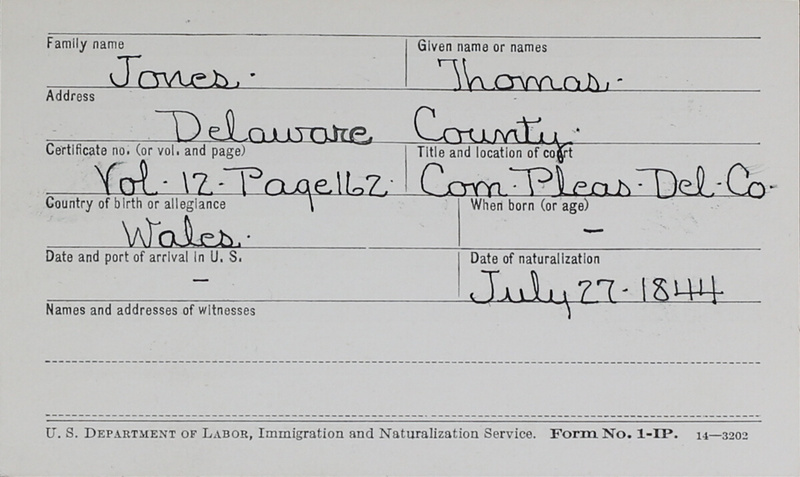 Family name Given name or names
Jones. Thomas.
Address
Delaware County.
Certificate no. (or vol. and page) Title and location of court
Vol. 12. Page 162. Com. Pleas. Del. Co.
Country of birth or allegiance When born (or age)
Wales. –
Date and port of arrival in U. S. Date of naturalization
– July 27. 1844
Names and addresses of witnesses
U. S. DEPARTMENT OF LABOR, Immigration and Naturalization Service. Form No. 1-IP. 14—3202